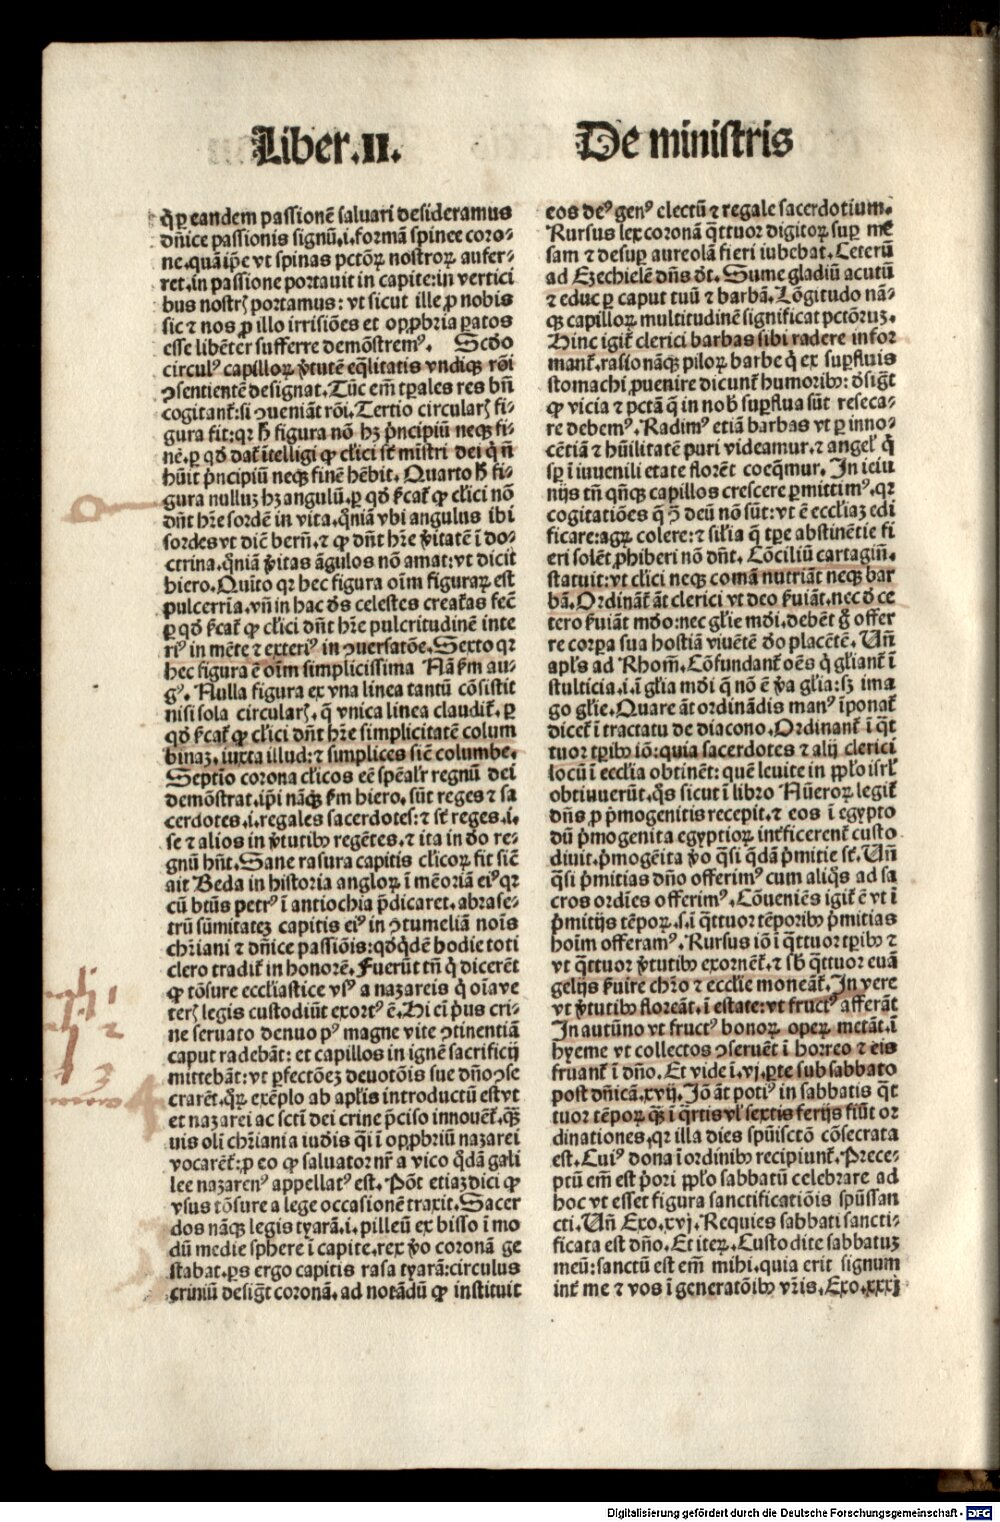 Liber.II.
De ministris
ꝙ ꝑ eandem passionē saluari desideramus
dn̄ice passionis signū.i.formā spinee coro⸗
ne.quā ip̄e vt spinas pctōꝝ nostroꝝ aufer⸗
ret.in passione portauit in capite:in vertici
bus nostr̄ portamus: vt sicut ille ꝓ nobis
sic ⁊ nos ꝓ illo irrisiōes et opprobria paratos
esse libēter sufferre demōstremꝰ. Scd̄o
circulꝰ capilloꝝ v̄tutē eq̄litatis vndiqꝫ rōi
ꝯsentientē designat.Tūc em̄ tꝑales res bn̄
cogitant̄:si ꝯueniāt rōi.Tertio circular̄ fi⸗
gura fit:qꝛ h̄ figura nō hꝫ p̄ncipiū neqꝫ fi⸗
nē.ꝑ qd̄ dat̄ ītelligi ꝙ cl̄ici st̄ mīstri dei q̄ n̄
hūit p̄ncipiū neqꝫ finē hēbit.Quarto h̄ fi⸗
gura nulluꝫ hꝫ angulū.ꝑ qd̄ s̄cat̄ ꝙ cl̄ici nō
dn̄t hr̄e sordē in vita.qn̄iā vbi angulus ibi
sordes vt diē bern̄.⁊ ꝙ dn̄t hr̄e v̄itatē ī do⸗
ctrina.qn̄iā v̄itas āgulos nō amat:vt dicit
hiero.Quīto qꝛ hec figura oīm figuraꝝ est
pulcerria.vn̄ in hac d̄s celestes creat̄as fec̄
ꝑ qd̄ s̄cat̄ ꝙ cl̄ici dn̄t hr̄e pulcritudinē inte
riꝰ in mēte ⁊ exteriꝰ in ꝯuersatōe.Sexto qꝛ
hec figura ē oīm simplicissima Nā s̄m au⸗
gꝰ. Nulla figura ex vna linea tantū cōsistit
nisi sola circular̄.q̄ vnica linea claudit̄.ꝑ
qd̄ s̄cat̄ ꝙ cl̄ici dn̄t hr̄e simplicitatē colum
binaꝫ.iuxta illud:⁊ simplices sic̄ columbe.
Septīo corona cl̄icos eē spēal̓r regnū dei
demōstrat.ip̄i nāqꝫ s̄m hiero.sūt reges ⁊ sa
cerdotes.i.regales sacerdotes:⁊ st̄ reges.i.
se ⁊ alios in v̄tutibꝫ regētes.⁊ ita in deo re⸗
gnū hn̄t.Sane rasura capitis cl̄icoꝝ fit sic̄
ait Beda in historia angloꝝ ī mēoriā eiꝰ qꝛ
cū bt̄us petrꝰ ī antiochia p̄dicaret.abrase⸗
trū sūmitateꝫ capitis eiꝰ in ꝯtumeliā noīs
chr̄iani ⁊ dn̄ice passiōis:qd̄ q̄dē hodie toti
clero tradit̄ in honorē.Fuerūt tn̄ q̄ dicerēt
ꝙ tōsure eccl̄iastice vsꝰ a nazareis q̄ oīa ve
ter̄ legis custodiūt exortꝰ ē.Hi ei p̄us cri⸗
ne seruato denuo pꝰ magne vite ꝯtinentiā
caput radebāt: et capillos in ignē sacrificij
mittebāt:vt ꝑfectōeꝫ deuotōis sue dn̄o ꝯse
crarēt.qr̄ exēplo ab apl̄is introductū est vt
et nazarei ac sct̄i dei crine p̄ciso innouēt̄.qꝫ
uis oli chr̄iani a iudis q̄si ī opprobriū nazarei
vocarēt̄:ꝑ eo ꝙ saluator nr̄ a vico q̄dā gali
lee nazarenꝰ appellatꝰ est.Pōt etiaꝫ dici ꝙ
vsus tōsure a lege occasionē traxit.Sacer
dos nāqꝫ legis tyarā.i.pilleū ex bisso ī mo
dū medie sphere ī capite.rex v̄o coronā ge
stabat.ꝑs ergo capitis rasa tyarā:circulus
criniū desiḡt coronā.ad notādū ꝙ instituit
eos deꝰ genꝰ electū ⁊ regale sacerdotium.
Rursus lex coronā q̄ttuor digitoꝝ suꝑ mē
sam ⁊ desuꝑ aureolā fieri iubebat.Ceterū
ad Ezechielē dn̄s d̄t.Sume gladiū acutū
⁊ educ ꝑ caput tuū ⁊ barbā.Lōgitudo nā⸗
qꝫ capilloꝝ multitudinē significat pctōruꝫ.
Hinc igit̄ clerici barbas sibi radere infor
mant̄.rasionāqꝫ piloꝝ barbe q̄ ex suꝑfluis
stomachi ꝓuenire dicunt̄ humoribꝫ:d̄siḡt
ꝙ vicia ⁊ pctā q̄ in nob̄ suꝑflua sūt reseca⸗
re debemꝰ.Radimꝰ etiā barbas vt ꝑ inno⸗
cētiā ⁊ hūilitatē puri videamur.⁊ angel̓ q̄
sꝑ ī iuuenili etate florēt coeq̄mur.In ieiu
nijs tn̄ qn̄qꝫ capillos crescere ꝑmittimꝰ.qꝛ
cogitatiōes q̄ ꝯ̄ deū nō sūt:vt ē ecclīaꝫ edi
ficare:agꝝ colere:⁊ sil̓ia q̄ tꝑe abstinētie fi
eri solēt ꝓhiberi nō dn̄t. Cōciliū cartagin̄.
statuit:vt cl̄ici neqꝫ comā nutriāt neqꝫ bar
bā.Ordināt̄ āt clerici vt deo s̄uiāt.nec d̄ ce
tero s̄uiāt mūdo:nec gl̄ie mūdi.debēt ḡ offer
re corpa sua hostiā viuētē deo placētē.Vn̄
apl̓s ad Rhom̄.Cōfundant̄ oēs q̄ gl̄iant̄ ī
stulticia.i.ī gl̄ia mūdi q̄ nō ē v̄a gl̄ia:sꝫ ima
go gl̄ie.Quare āt ordinādis manꝰ īponat̄
dicet̄ ī tractatu de diacono.Ordinant̄ ī q̄t
tuor tꝑibꝫ iō:quia sacerdotes ⁊ alij clerici
locū ī eccl̄ia obtinēt:quē leuite in pplo isrl̓
obtinuerūt.q̄s sicut ī libro Nūeroꝝ legit̄
dn̄s ꝓ p̄mogenitis recepit.⁊ eos ī egypto
dū p̄mogenita egyptioꝝ inter̄ficerent̄ custo
diuit.p̄mogēita v̄o q̄si q̄dā p̄mitie st̄.Vn̄
q̄si p̄mitias dn̄o offerimꝰ cum aliq̄s ad sa
cros ordīes offerimꝰ.Cōueniēs igit̄ ē vt ī
p̄mitijs tēpoꝝ.s.ī q̄ttuor tēporibꝫ p̄mitias
hoīm offeramꝰ.Rursus iō ī q̄ttuor tꝑibꝫ ⁊
vt q̄ttuor v̄tutibꝫ exornēt̄.⁊ sb̄ q̄ttuor euā
gelijs s̄uire chr̄o ⁊ eccl̄ie moneāt̄.In vere
vt v̄tutibꝫ floreāt.ī estate:vt fructꝰ afferāt
In autūno vt fructꝰ bonoꝝ opeꝝ metāt.ī
hyeme vt collectos ꝯseruēt ī horreo ⁊ eis
fruant̄ ī dn̄o.Et vide ī.vj.ꝑte sub sabbato
post dn̄icā.xvij.Jō āt potiꝰ in sabbatis q̄t
tuor tēpoꝝ qꝫ̄ ī q̄rtis vl̓ sextis ferijs fiūt or
dinationes.qꝛ illa dies spūisctō cōsecrata
est.Cuiꝰ dona ī ordinibꝫ recipiunt̄.Prece⸗
ptū em̄ est p̄ori pplo sabbatū celebrare ad
hoc vt esset figura sanctificatiōis spūssan
cti.Vn̄ Exo.xvj.Requies sabbati sancti⸗
ficata est dn̄o.Et iteꝝ.Custodite sabbatuꝫ
meū:sanctū est em̄ mihi.quia erit signum
int̄ me ⁊ vos ī generatōibꝫ vr̄is.Exo.xxxj
Digitalisierung gefördert durch die Deutsche Forschungsgemeinschaft - DFG